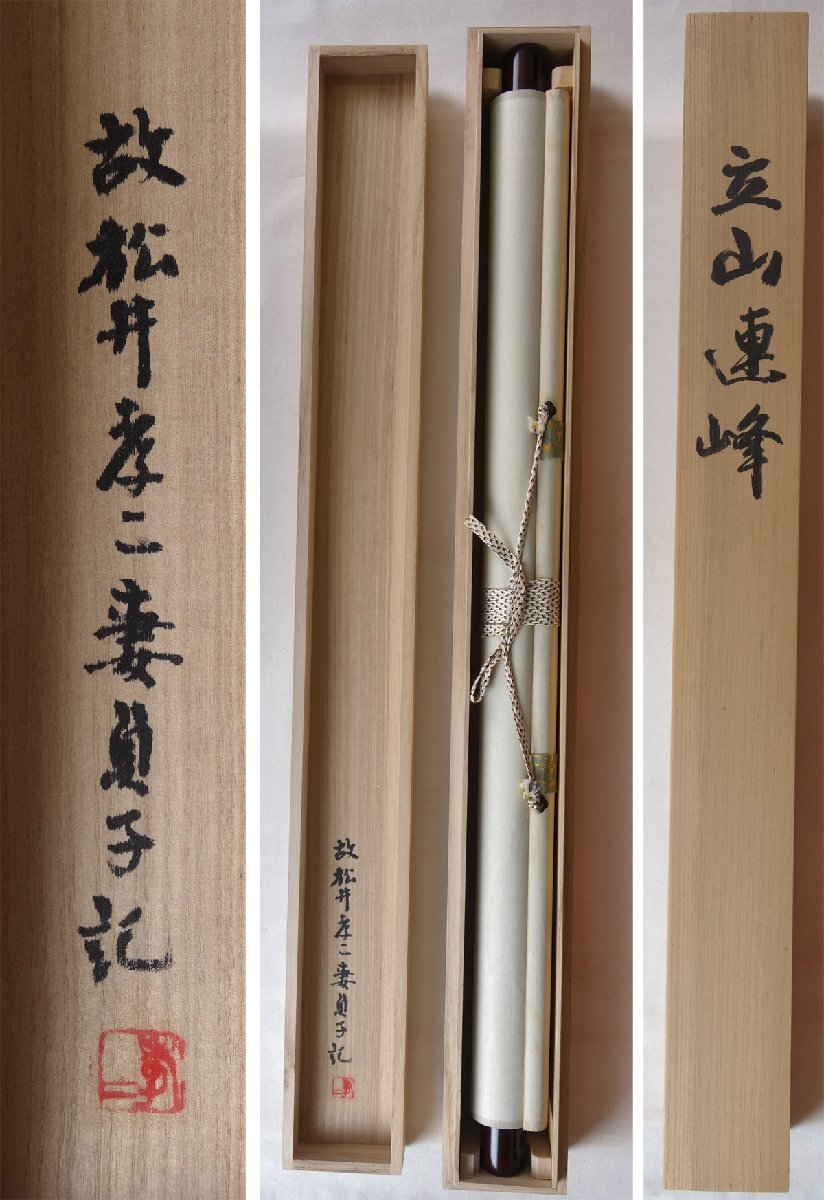 故松井孝二妻貞子記
故松井孝二妻貞子記
立山連峰